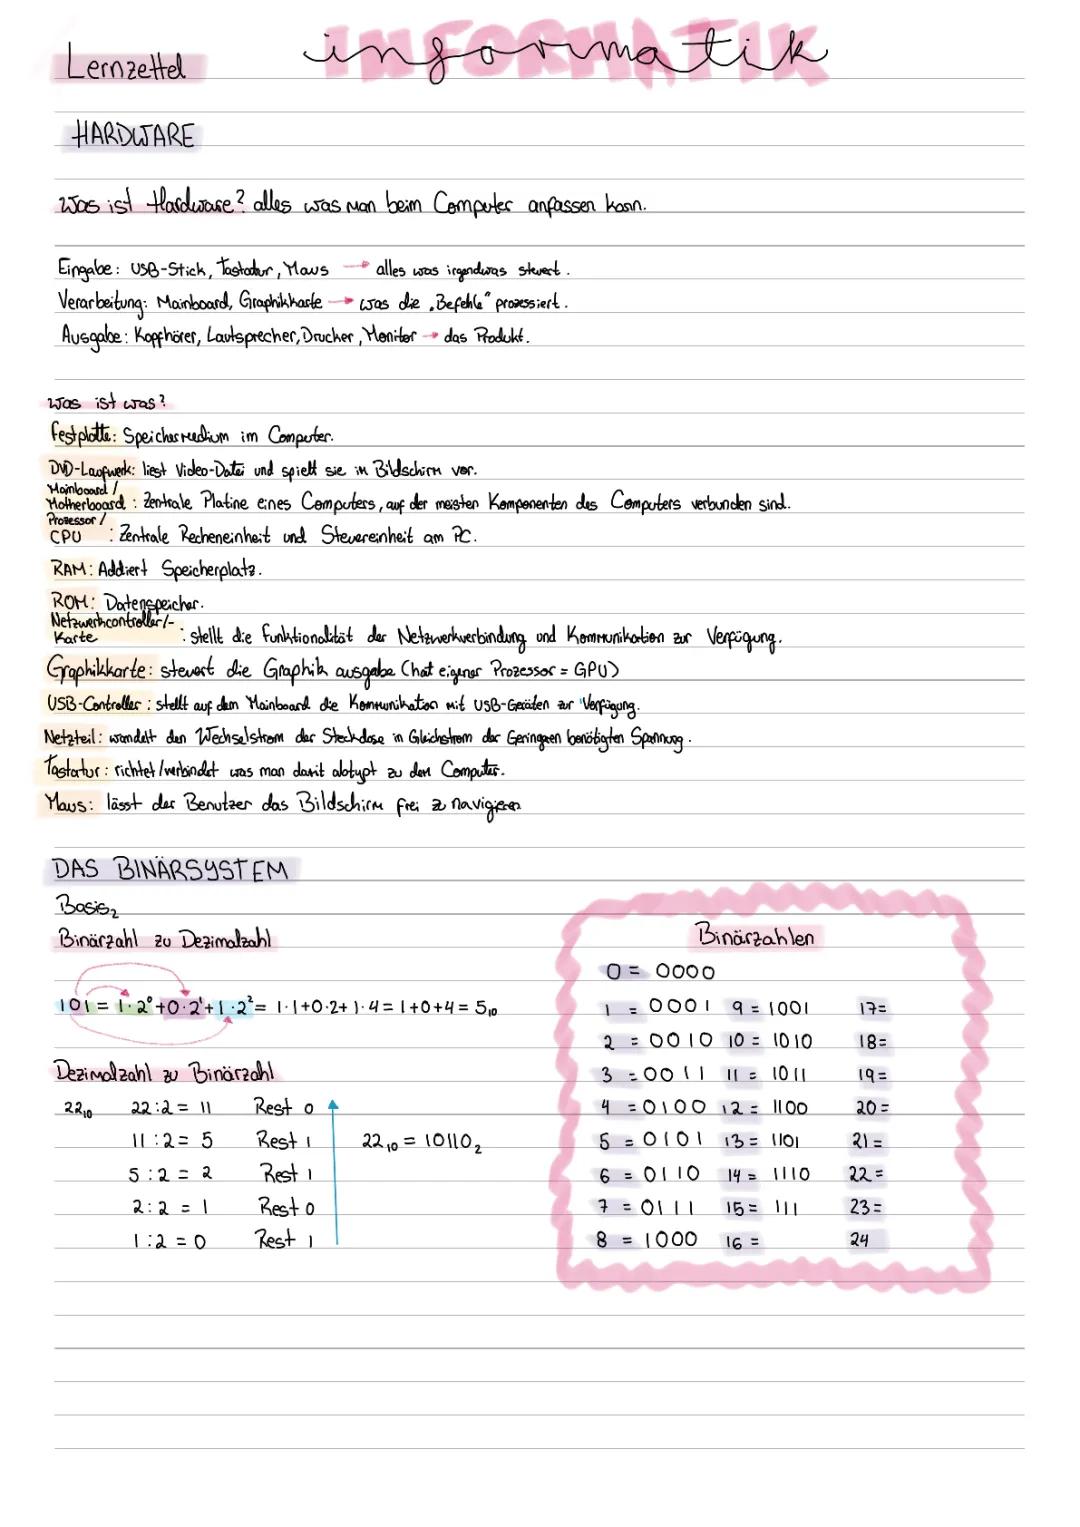 Lernzettel
informatik
INFORMATIK
HARDWARE
Was ist Hardware? alles was man beim Computer anfassen kann.
Eingabe: USB-Stick, Tastatur, Maus → alles was irgendwas steuert.
Verarbeitung: Mainboard, Graphikkarte → was die „Befehle" prozessiert.
Ausgabe: Kopfhörer, Lautsprecher, Drucker, Monitor → das Produkt.
Was ist was?
Festplatte: Speichermedium im Computer.
DVD-Laufwerk: liest Video-Datei und spielt sie im Bildschirm vor.
Mainboard /
Motherboard: Zentrale Platine eines Computers, auf der meisten Komponenten des Computers verbunden sind.
Prozessor /
CPU : Zentrale Recheneinheit und Steuereinheit am PC.
RAM: Addiert Speicherplatz.
ROM: Datenspeicher.
Netzwerkcontroller/-
Karte : stellt die Funktionalität der Netzwerkverbindung und Kommunikation zur Verfügung.
Graphikkarte: steuert die Graphik ausgabe (hat eigener Prozessor = GPU)
USB-Controller: stellt auf dem Mainboard die Kommunikation mit USB-Geräten zur Verfügung.
Netzteil: wandelt den Wechselstrom der Steckdose in Gleichstrom der Geringeren benötigten Spannung.
Tastatur: richtet/verbindet was man damit abtypt zu dem Computer.
Maus: lässt der Benutzer das Bildschirm frei zu navigieren
DAS BINÄRSYSTEM
Basis₂
Binärzahl zu Dezimalzahl
101 = 1·2⁰+0·2¹+1·2² = 1·1+0·2+1·4=1+0+4=5₁₀
Dezimalzahl zu Binärzahl
22₁₀ 22:2 = 11 Rest 0
11:2 = 5 Rest 1 22₁₀ = 10110₂
5:2 = 2 Rest 1
2:2 = 1 Rest 0
1:2 = 0 Rest 1
Binärzahlen
0 = 0000
1 = 0001 9 = 1001 17=
2 = 0010 10 = 1010 18=
3 = 0011 11 = 1011 19=
4 = 0100 12 = 1100 20=
5 = 0101 13 = 1101 21=
6 = 0110 14 = 1110 22=
7 = 0111 15 = 111 23=
8 = 1000 16 = 24